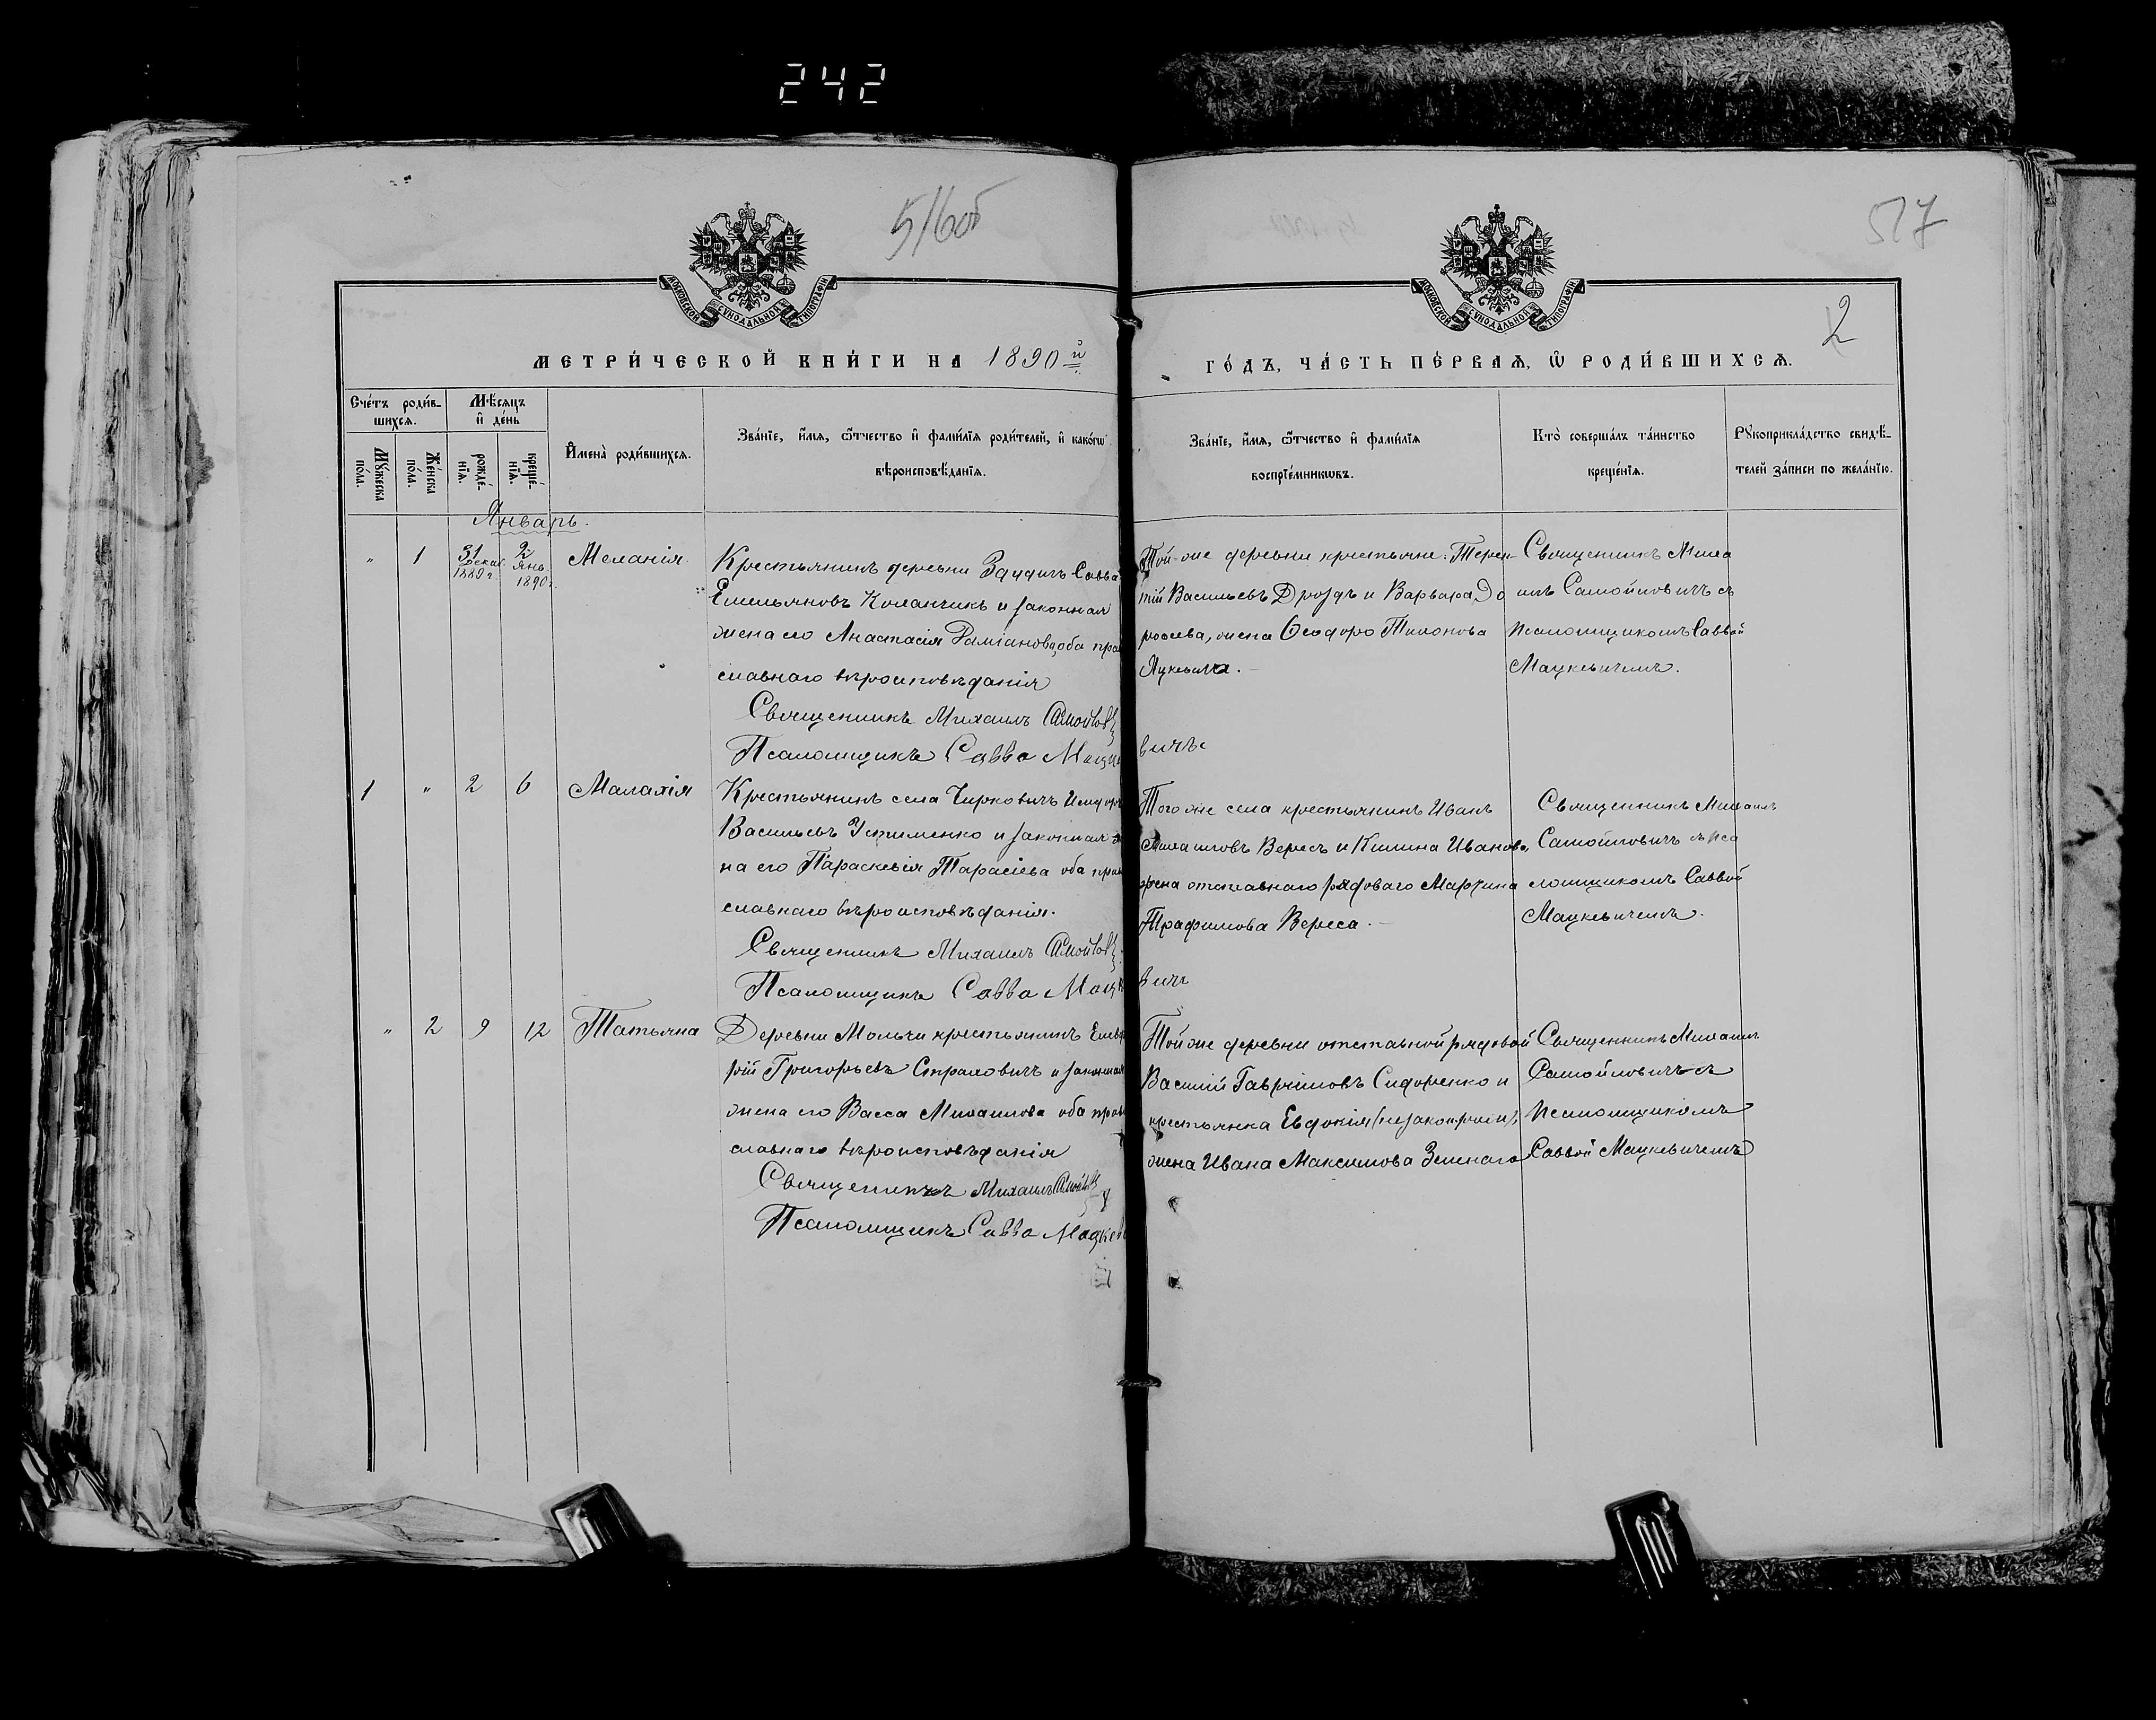 242
516об
517
МОСКОВСКОЙ СѴНОДАЛЬНОЙ ТИПОГРАФІИ
МОСКОВСКОЙ СѴНОДАЛЬНОЙ ТИПОГРАФІИ
2
МЕТРИ́ЧЕСКОЙ КНИ́ГИ НА 1890й
ГО́ДЪ, ЧА́СТЬ ПЕ́РВАѦ, Ѽ РОДИ́ВШИХСѦ.
Сче́тъ роди́в-
шихсѧ.
Мѣ́сяцъ
и҆ де́нь
Мꙋ́жеска по́ла.
Же́нска по́ла.
рожде́-нїѧ.
креще́-нїѧ.
И҆мена̀ роди́вшихсѧ.
Зва́нїе, и҆́мѧ, ѻ҆́тчество и҆ фами́лїѧ роди́телей, и҆ како́гѡ
вѣроисповѣ́данїѧ.
Зва́нїе, и҆́мѧ, ѻ҆́тчество и҆ фами́лїѧ
воспрїе́мникѡвъ.
Кто̀ соверша́лъ та́инство
креще́нїѧ.
Рꙋкоприкла́дство свидѣ́-
телей за́писи по жела́нїю.
Январь.
" 1 31 декаб. 1889 г. 2 янв. 1890 г. Меланія.
Крестьянинъ деревни Савва
Емельяновъ и законная
жена его Анастасія Даміанова, оба пра
славнаго вѣроисповѣданія
Священникъ Михаилъ Самойлов
Псаломщикъ Савва Мацке
Той-же деревни крестьяне: Терен-
тій Васильевъ Дроздъ и Варвара До
роѳеева, жена Ѳеодора Тихонова
Яцкевича.
вичъ
Священникъ Миха
илъ Самойловичъ съ
псаломщикомъ Саввой
Мацкевичемъ.
1 " 2 6 Малахія
Крестьянинъ села Чирковичъ Исидоръ
Васильевъ Устименко и законная же
на его Параскевія Тарасіева оба прав
славнаго вѣроисповѣданія.
Священникъ Михаилъ Самойлов
Псаломщикъ Савва Мацк
Того же села крестьянинъ Иванъ
Михаиловъ Вересъ и Килина Иванова,
жена отставнаго рядоваго Мартина
Трафимова Вереса.
вичъ
Священникъ Михаилъ
Самойловичъ съ пса
ломщикомъ Саввой
Мацкевичемъ.
" 2 9 12 Татьяна
Деревни Мольчи крестьянинъ Елев
рій Григорьевъ Страховичъ и законная
жена его Васса Михаилова оба прав
славнаго вѣроисповѣданія
Священникъ Михаилъ Самойлов
Псаломщикъ Савва Мацкев
Той же деревни отставной рядовой
Василій Гавріиловъ Сидоренко и
крестьянка Евдокія (незаконрожд),
жена Ивана Максимова Зеленаго
Священникъ Михаилъ
Самойловичъ съ
псаломщикомъ
Саввой Мацкевичемъ